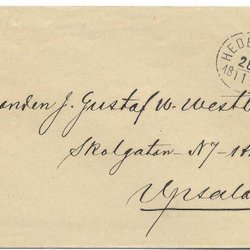 HEDE
20
1811
anden J. Gustaf W. Westb
Skolgatan N7-
Upsala